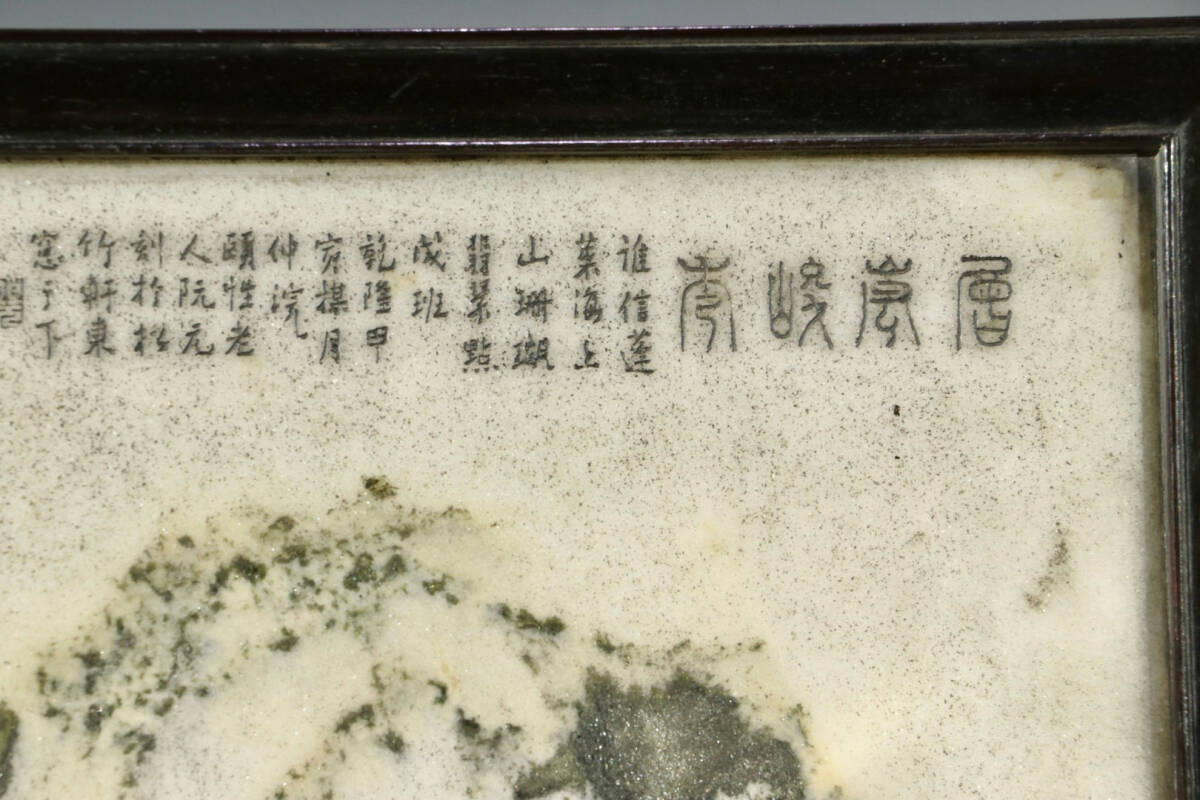 層峻秀
誰信蓬
萊海上
山珊瑚
翡翠點
成班
乾隆甲
寅楳月
仲浣
頤性老
人阮元
刻於松
竹軒東
窓之下